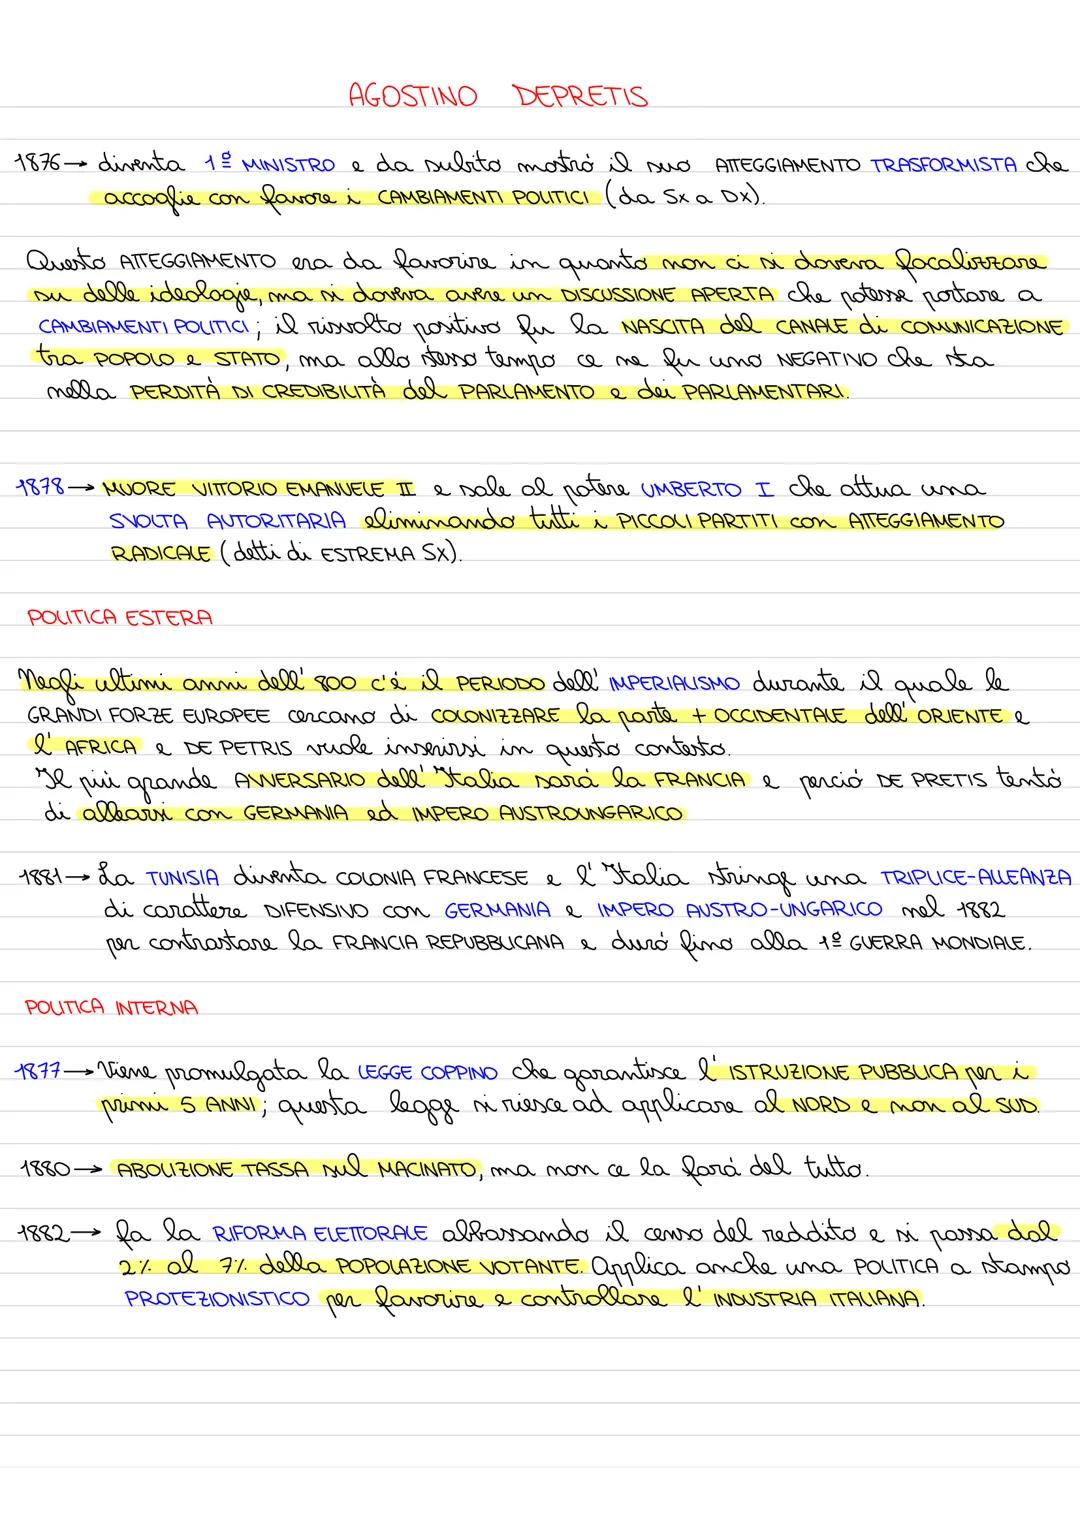 AGOSTINO DEPRETIS
1876→ diventa 1º MINISTRO e da subito mostró il suo ATTEGGIAMENTO TRASFORMISTA che
accoglie con favore i CAMBIAMENTI POLITICI (da Sx a Dx).
Questo ATTEGGIAMENTO era da favorire in quanto non ci si doveva focalizzare
su delle ideologie, ma si doveva avere un DISCUSSIONE APERTA che potesse portare a
CAMBIAMENTI POLITICI; il risvolto positivo fu la NASCITA del CANALE di COMUNICAZIONE
tra POPOLO e STATO, ma allo stesso tempo ce ne fu uno NEGATIVO che sta
nella PERDITÀ DI CREDIBILITÀ del PARLAMENTO e dei PARLAMENTARI.
1878→ MUORE VITTORIO EMANUELE II e sale al potere UMBERTO I che attua una
SVOLTA AUTORITARIA eliminando tutti i PICCOLI PARTITI con ATTEGGIAMENTO
RADICALE (detti di ESTREMA SX).
POLITICA ESTERA
Negli ultimi anni dell' 800 c'é il PERIODO dell' IMPERIALISMO durante il quale le
GRANDI FORZE EUROPEE cercano di COLONIZZARE la parte + OCCIDENTALE dell' ORIENTE e
l' AFRICA e DE PETRIS vuole inserirsi in questo contesto.
Il piú grande AVVERSARIO dell' Italia sará la FRANCIA e perció DE PRETIS tentó
di allearsi con GERMANIA ed IMPERO AUSTROUNGARICO
1881→ La TUNISIA diventa COLONIA FRANCESE e l' Italia stringe una TRIPLICE-ALLEANZA
di carattere DIFENSIVO con GERMANIA e IMPERO AUSTRO-UNGARICO nel 1882
per contrastare la FRANCIA REPUBBLICANA e duró fino alla 1º GUERRA MONDIALE.
POLITICA INTERNA
1877→ Viene promulgata la LEGGE COPPINO che garantisce l' ISTRUZIONE PUBBLICA per i
primi 5 ANNI; questa legge si riesce ad applicare al NORD e non al SUD.
1880→ ABOLIZIONE TASSA sul MACINATO, ma non ce la fará del tutto.
1882→ fa la RIFORMA ELETTORALE abbassando il censo del reddito e si passa dal
2% al 7% della POPOLAZIONE VOTANTE. Applica anche una POLITICA a stampo
PROTEZIONISTICO per favorire e controllare l' INDUSTRIA ITALIANA.